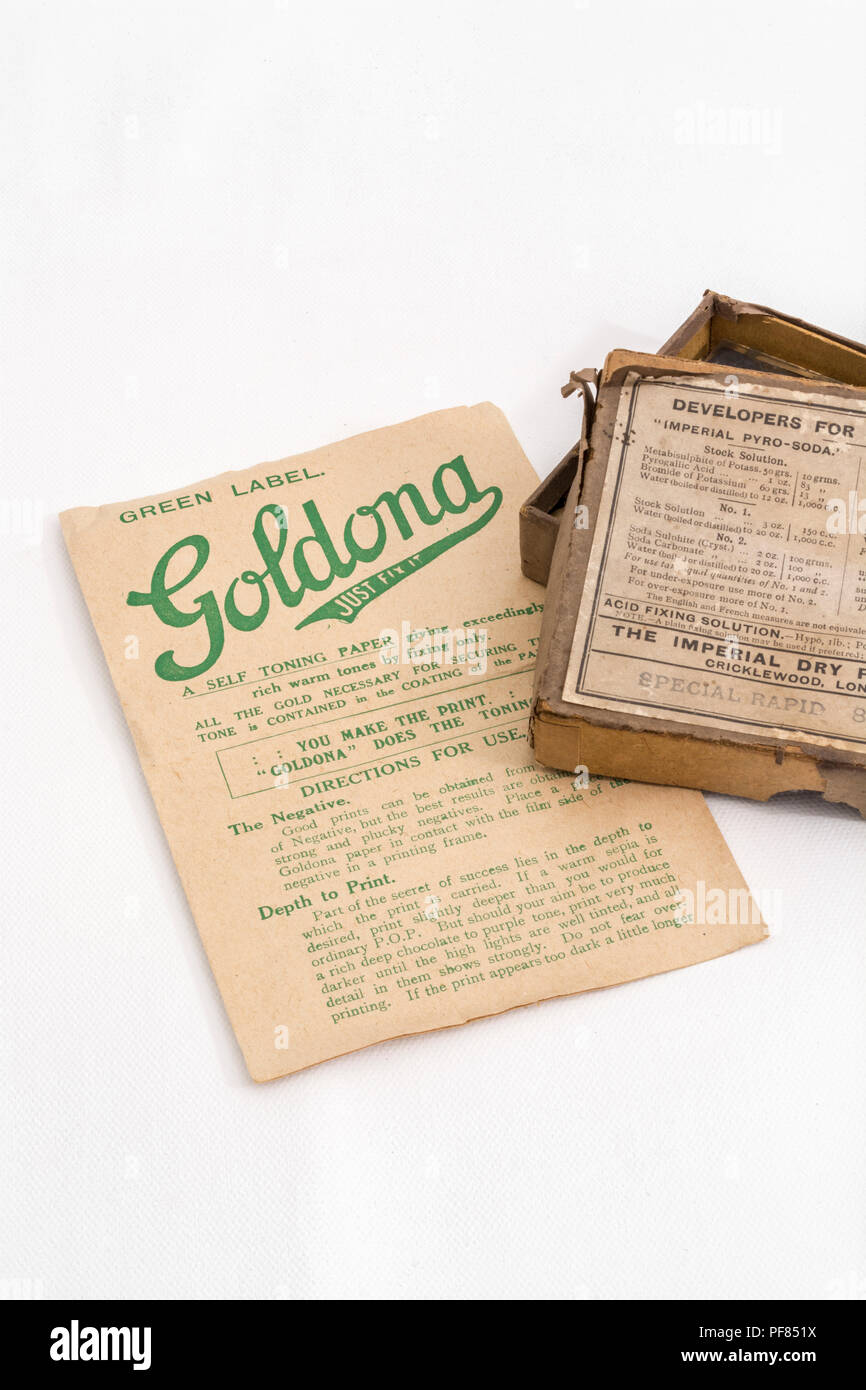 GREEN LABEL.
Goldona
JUST FIX IT
A SELF TONING PAPER giving exceedingly
rich warm tones by fixing only.
ALL THE GOLD NECESSARY FOR SECURING
TONE IS CONTAINED in the COATING of the
: : YOU MAKE THE PRINT. :
"GOLDONA" DOES THE TONING
DIRECTIONS FOR USE.
The Negative.
Good prints can be obtained from
of Negative, but the best results are
strong and plucky negatives. Place a
Goldona paper in contact with the film side of the
negative in a printing frame.
Depth to Print.
Part of the secret of success lies in the depth to
which the print is carried. If a warm sepia is
desired, print slightly deeper than you would for
ordinary P.O.P. But should your aim be to produce
a rich deep chocolate to purple tone, print very much
darker until the high lights are well tinted, and all
detail in them shows strongly. Do not fear over-
printing. If the print appears too dark a little longer
DEVELOPERS FOR
"IMPERIAL PYRO-SODA."
Stock Solution.
Metabisulphite of Potass. 50 grs. 10 grms.
Pyrogallic Acid ... ... 1 oz. 83 "
Bromide of Potassium 60 grs. 13 "
Water (boiled or distilled) to 12 oz. 1,000 c.c.
No. 1.
Stock Solution ... ... 3 oz. 150 c.c.
Water (boiled or distilled) to 20 oz. 1,000 c.c.
No. 2.
Soda Sulphite (Cryst.) ... 2 oz. 100 grms.
Soda Carbonate " ... 2 oz. 100 "
Water (boiled or distilled) to 20 oz. 1,000 c.c.
For use take equal quantities of No. 1 and 2.
For under-exposure use more of No. 2.
For over-exposure more of No. 1.
The English and French measures are not
ACID FIXING SOLUTION.—Hypo, 1lb.;
NOTE.—A plain fixing solution may be used if preferred;
THE IMPERIAL DRY
CRICKLEWOOD,
SPECIAL RAPID
alamy
Image ID: PF851X
www.alamy.com